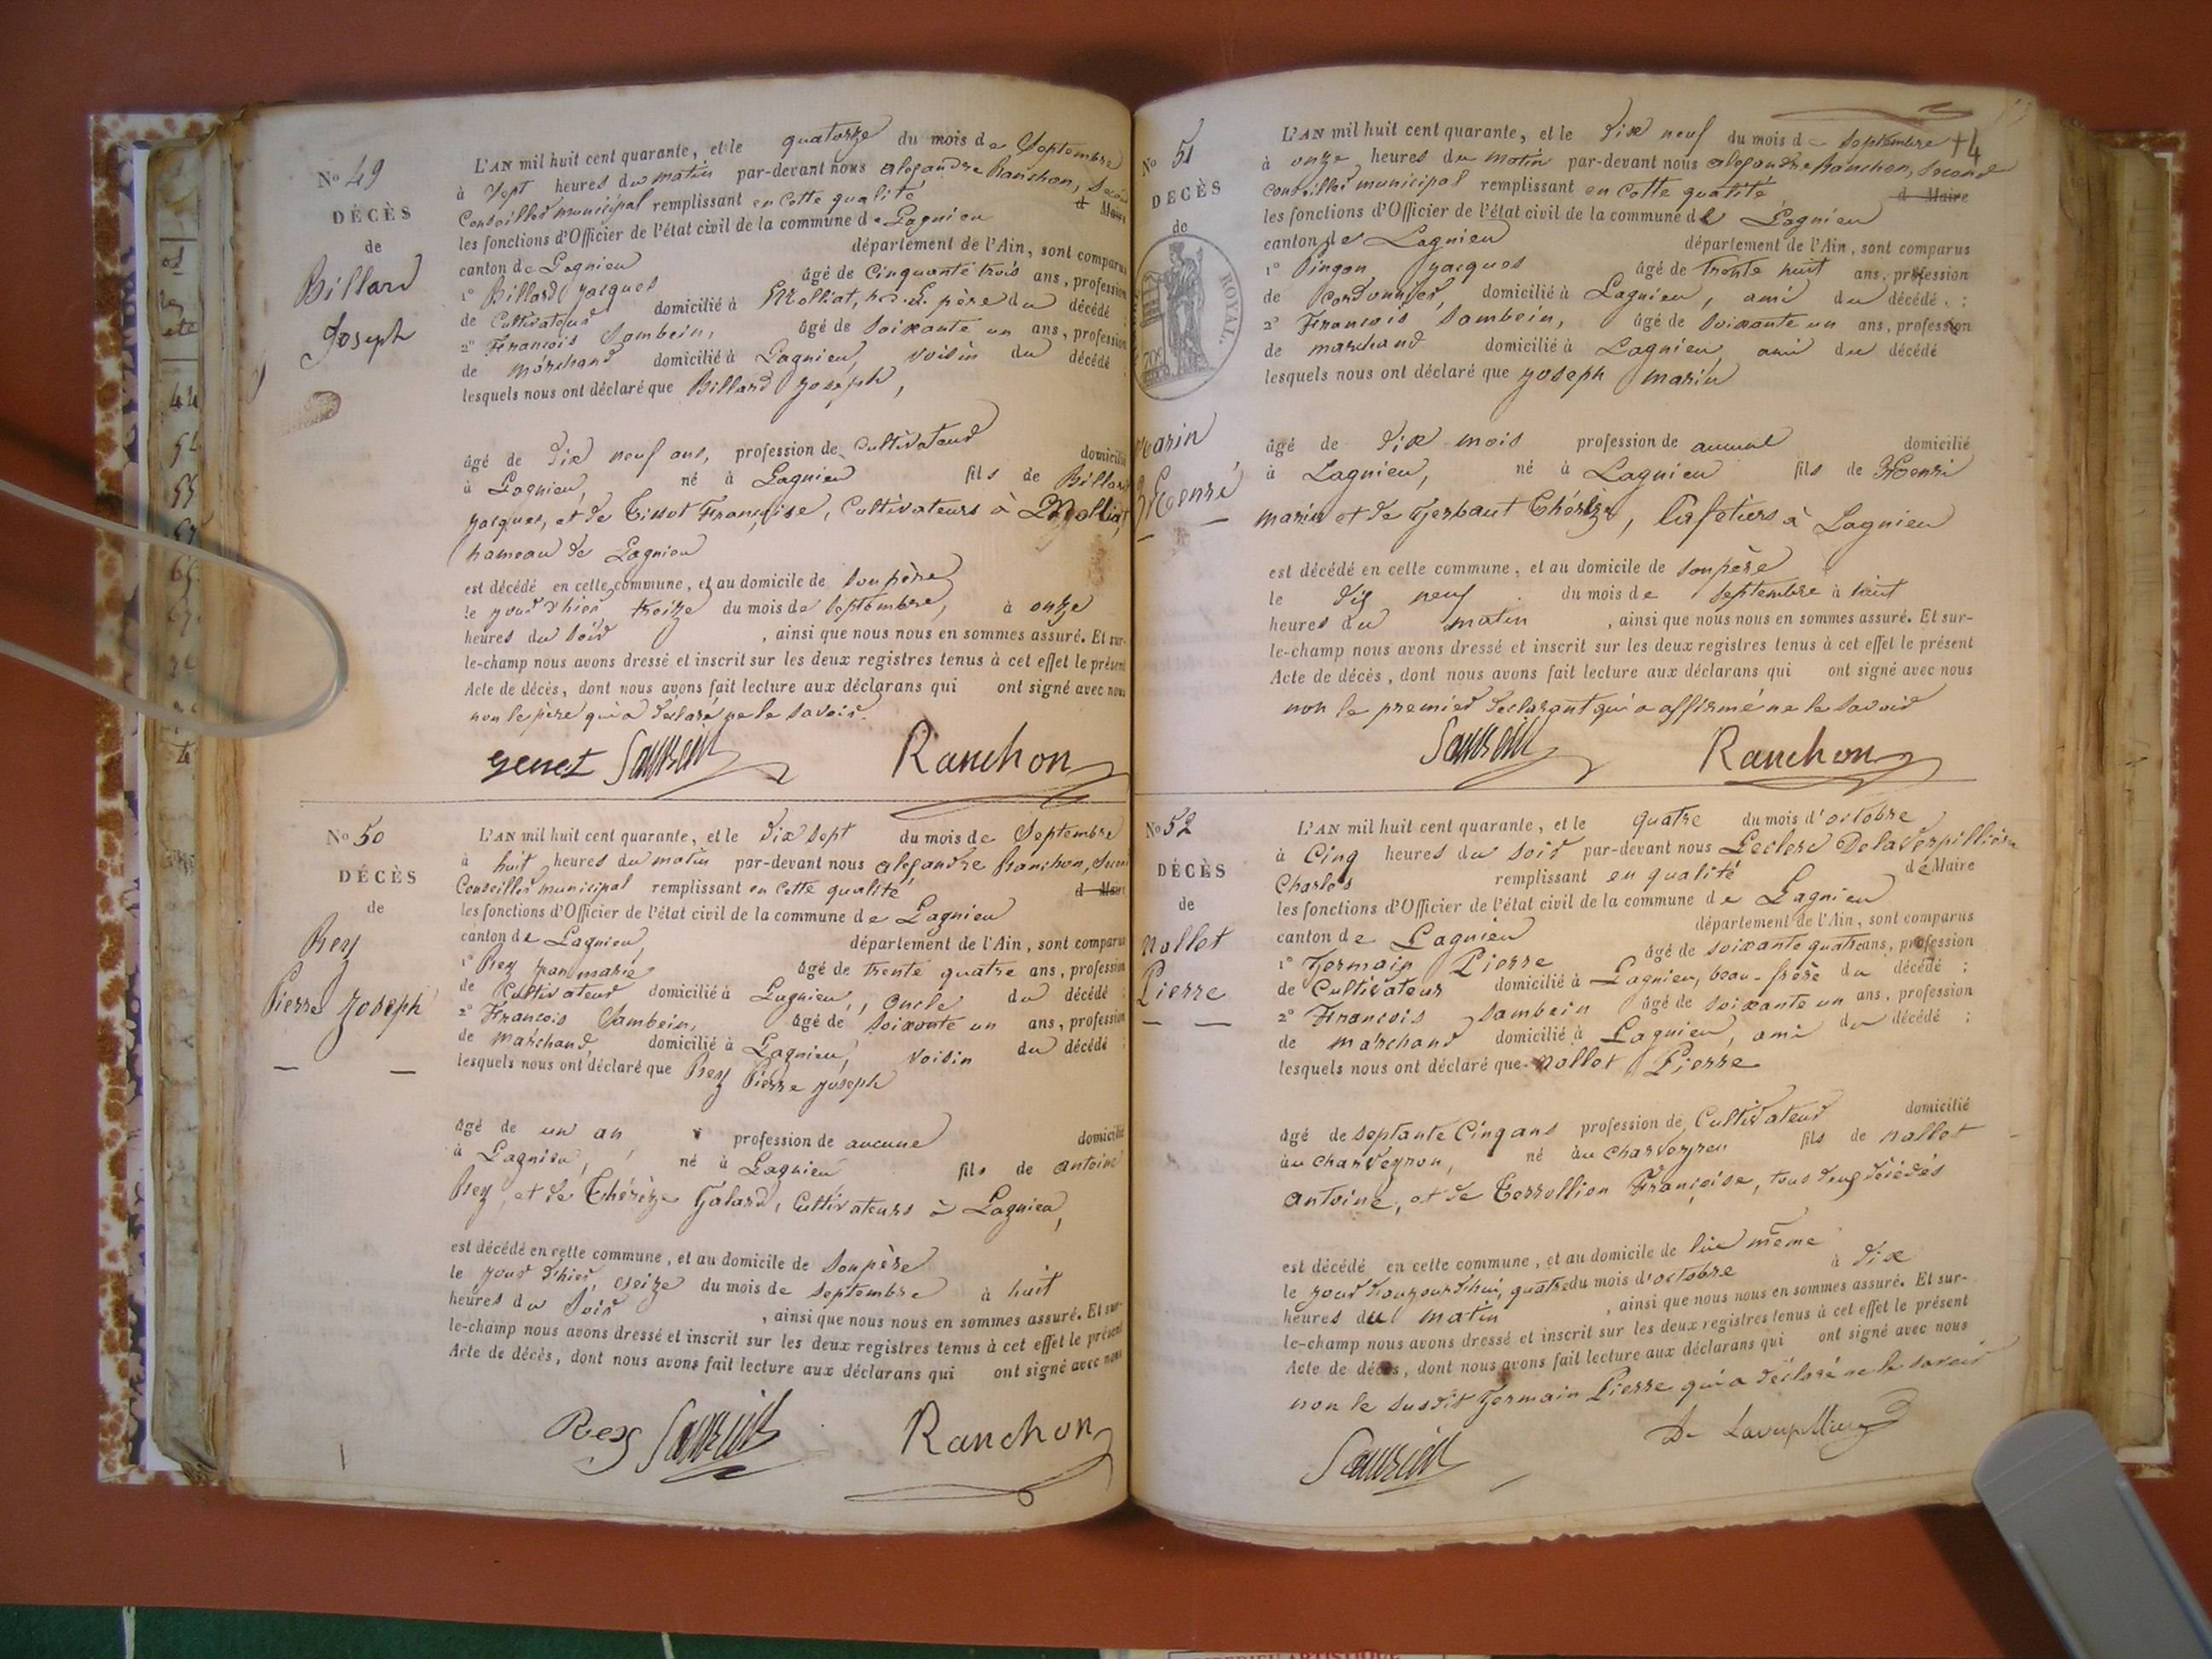 No 49
DÉCÈS
de
Billard
Joseph
L'AN mil huit cent quarante, et le quatorze du mois de Septembre
à Sept heures du matin par-devant nous alexandre Ranchon, Second
Conseiller municipal remplissant en cette qualité d Maire
les fonctions d'Officier de l'état civil de la commune de Lagnieu
canton de Lagnieu département de l'Ain, sont comparus
1° Billard jacques âgé de Cinquante trois ans, profession
de Cultivateur domicilié à Molliat, père du décédé ;
2° François Sambein, âgé de soixante un ans, profession
de marchand domicilié à Lagnieu, voisin du décédé
lesquels nous ont déclaré que Billard Joseph,
âgé de dix neuf ans, profession de Cultivateur domicilié
à Lagnieu, né à Lagnieu fils de Billard
jacques, et de Tissot Françoise, Cultivateurs à Molliat,
hameau de Lagnieu
est décédé en cette commune, et au domicile de son père
le jour d'hier treize du mois de Septembre, à onze
heures du soir, ainsi que nous nous en sommes assuré. Et sur-
le-champ nous avons dressé et inscrit sur les deux registres tenus à cet effet le présent
Acte de décès, dont nous avons fait lecture aux déclarans qui ont signé avec nous
non le père qui a déclaré ne le savoir.
genet Sambein Ranchon
No 50
DÉCÈS
de
Rey
Pierre Joseph
L'AN mil huit cent quarante, et le dix sept du mois de Septembre
à huit heures du matin par-devant nous alexandre Ranchon, Second
Conseiller municipal remplissant en cette qualité d Maire
les fonctions d'Officier de l'état civil de la commune de Lagnieu
canton de Lagnieu, département de l'Ain, sont comparus
1° Rey jean marie âgé de trente quatre ans, profession
de Cultivateur domicilié à Lagnieu, oncle du décédé ;
2° François Sambein, âgé de soixante un ans, profession
de marchand, domicilié à Lagnieu, voisin du décédé ;
lesquels nous ont déclaré que Rey Pierre joseph
âgé de un an profession de aucune domicilié
à Lagnieu, né à Lagnieu fils de antoine
Rey et de Thérèze Galard, Cultivateurs à Lagnieu,
est décédé en cette commune, et au domicile de son père
le jour d'hier, seize du mois de Septembre à huit
heures du soir, ainsi que nous nous en sommes assuré. Et sur-
le-champ nous avons dressé et inscrit sur les deux registres tenus à cet effet le présent
Acte de décès, dont nous avons fait lecture aux déclarans qui ont signé avec nous
Rey Sambein Ranchon
+4
No 51
DÉCÈS
de
ROYAL.
70c
marin
Henri
L'AN mil huit cent quarante, et le dix neuf du mois de Septembre
à onze heures du matin par-devant nous alexandre Ranchon, second
Conseiller municipal remplissant en cette qualité d Maire
les fonctions d'Officier de l'état civil de la commune de Lagnieu
canton de Lagnieu département de l'Ain, sont comparus
1° Pingon jacques âgé de trente huit ans, profession
de cordonnier, domicilié à Lagnieu, ami du décédé ;
2° François Sambein, âgé de soixante un ans, profession
de marchand domicilié à Lagnieu, ami du décédé
lesquels nous ont déclaré que joseph marin
âgé de dix mois profession de aucune domicilié
à Lagnieu, né à Lagnieu fils de Henri
marin et de Gerbaut Thérèze, Cafetiers à Lagnieu
est décédé en cette commune, et au domicile de son père
le dix neuf du mois de septembre à huit
heures du matin, ainsi que nous nous en sommes assuré. Et sur-
le-champ nous avons dressé et inscrit sur les deux registres tenus à cet effet le présent
Acte de décès, dont nous avons fait lecture aux déclarans qui ont signé avec nous
non le premier déclarant qui a affirmé ne le savoir
Sambein Ranchon
No 52
DÉCÈS
de
nallet
Pierre
L'AN mil huit cent quarante, et le quatre du mois d'octobre
à Cinq heures du soir par-devant nous Leclerc DelaVerpillière
Charles remplissant en qualité de Maire
les fonctions d'Officier de l'état civil de la commune de Lagnieu
canton de Lagnieu département de l'Ain, sont comparus
1° Germain Pierre âgé de soixante quatre ans, profession
de Cultivateur domicilié à Lagnieu, beau-frère du décédé ;
2° François Sambein âgé de soixante un ans, profession
de marchand domicilié à Lagnieu, ami du décédé ;
lesquels nous ont déclaré que nallet Pierre
âgé de septante Cinq ans profession de Cultivateur domicilié
au charveyron, né au charveyron fils de nallet
antoine, et de Terrollion Françoise, tous deux décédés
est décédé en cette commune, et au domicile de lui même
le jour d'aujourd'hui, quatre du mois d'octobre à dix
heures du matin, ainsi que nous nous en sommes assuré. Et sur-
le-champ nous avons dressé et inscrit sur les deux registres tenus à cet effet le présent
Acte de décès, dont nous avons fait lecture aux déclarans qui ont signé avec nous
non le susdit Germain Pierre qui a déclaré ne le savoir
Sambein De Laverpillière